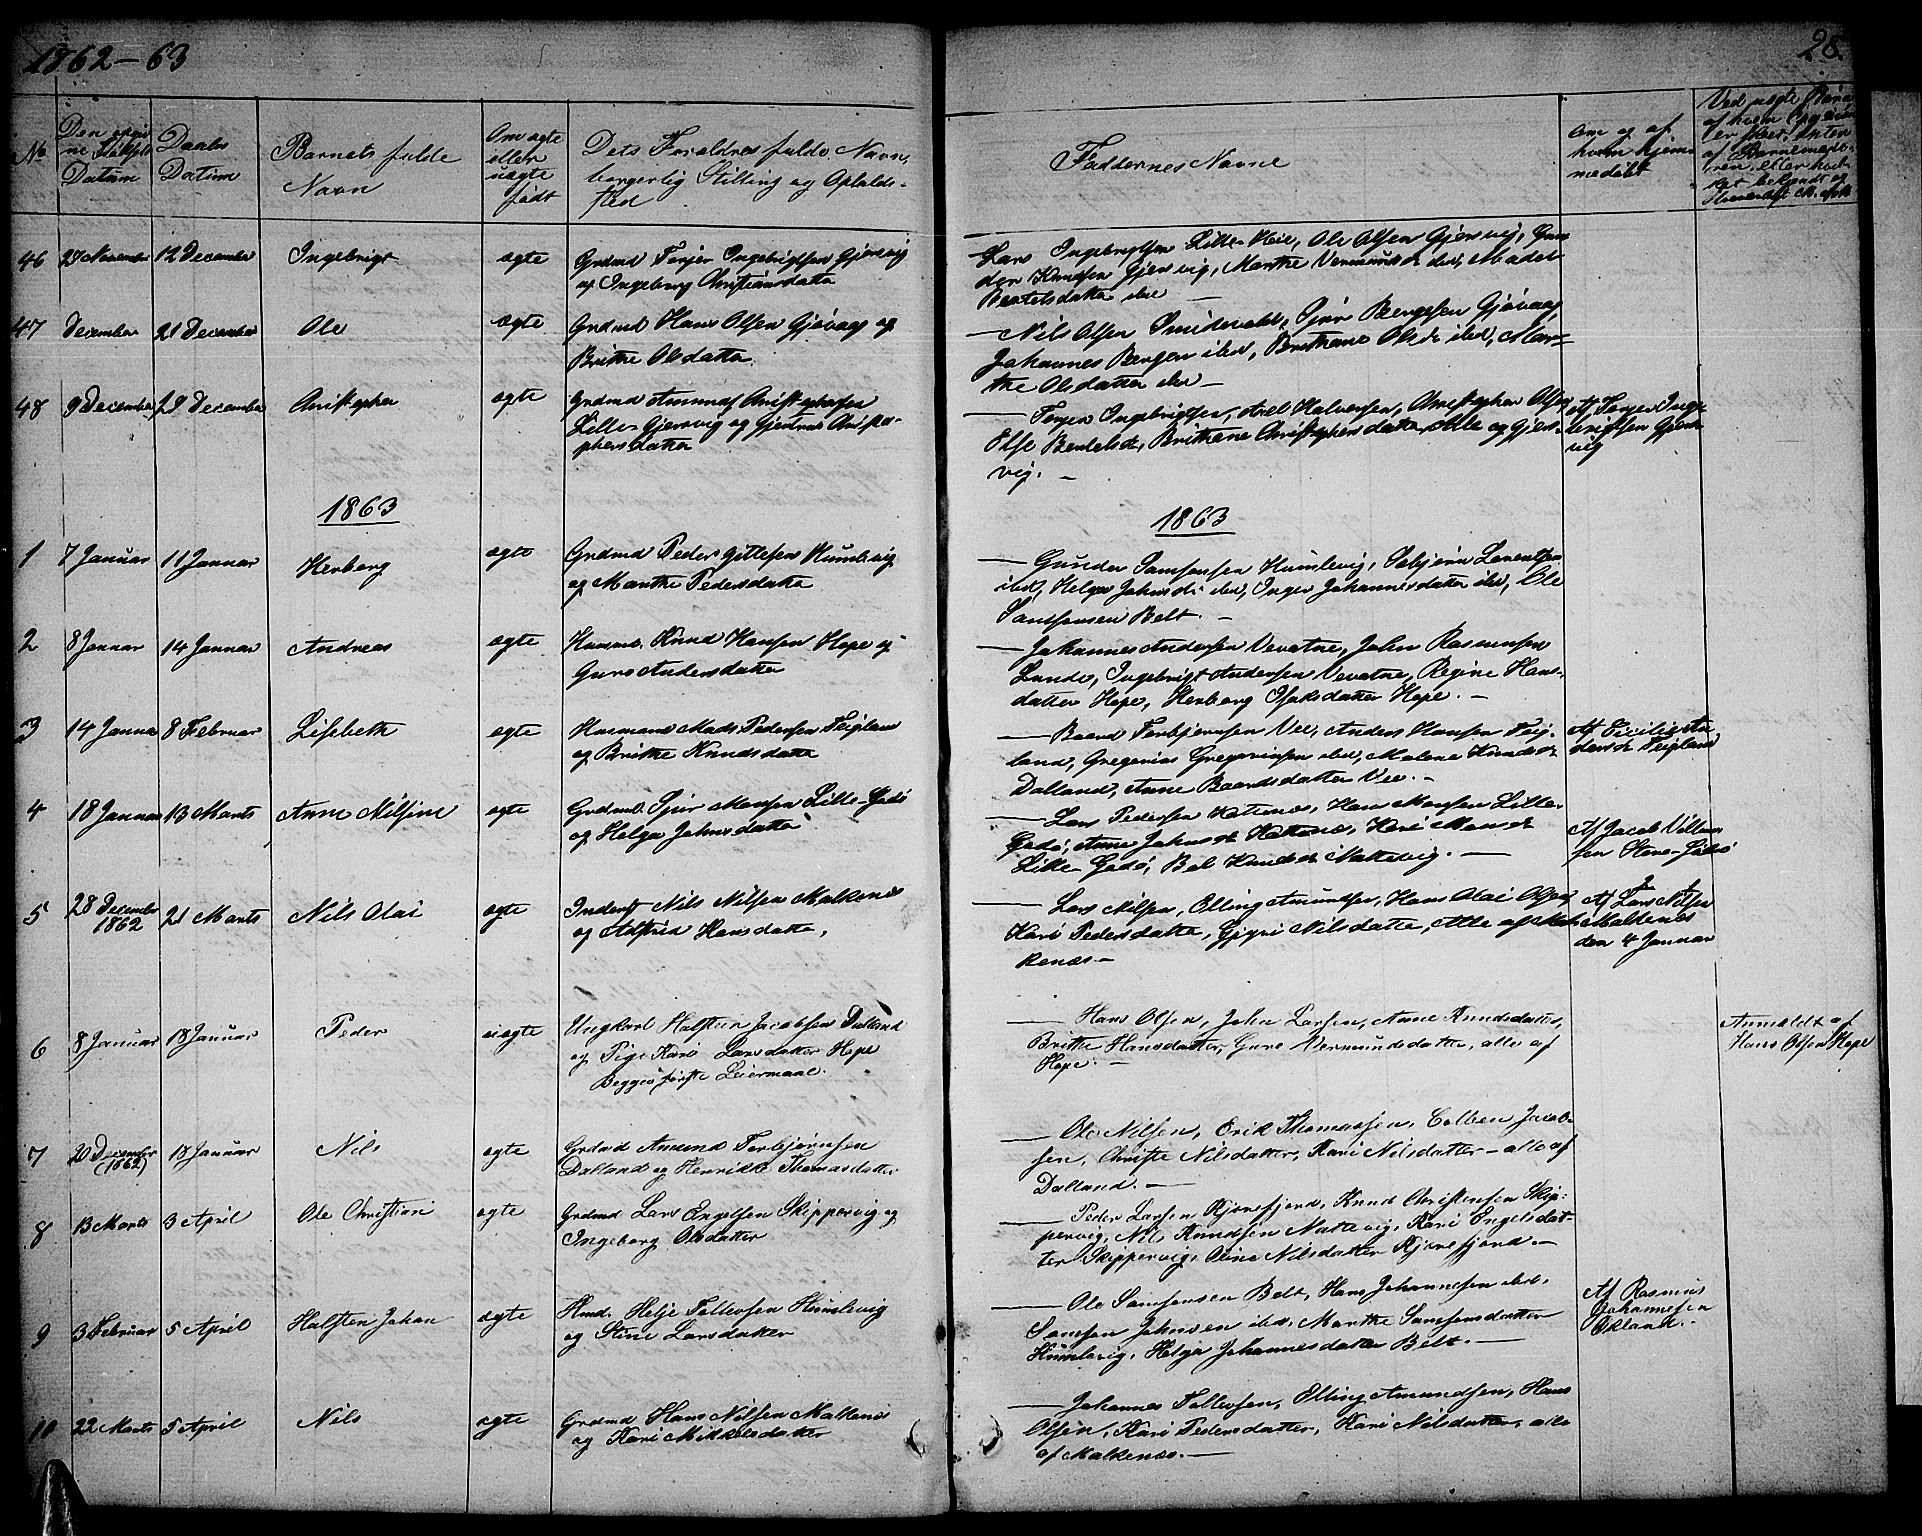 1862-63
28.
No
Den opgivne Fødsels Datum
Daabs Datum
Barnets fulde Navn
Om ægte eller uægte født
Dets Forældres fulde Navn, borgerlig Stilling og Opholdssted
Faddernes Navne
Om og af hvem hjemmedøbt
Ved uægte Børn af hvem
46 27 November 12 December Ingebrigt ægte
Grdmd Terjer Ingebrigtsen Gjersvig
og Ingeborg Christiansdatter
Lars Ingebrigtsen Lille-Hie, Ole Olsen Gjersvig, Gun
der Knudsen Gjersvig, Marthe Vermundsd ibd, Madel
Bertelsdatter ibd —
47 December 21 December Ole ægte
Grdmd Hans Olsen Gjøvaag og
Brithe Olsdatter
— Nils Olsen Smidevold, Sjur Bengtsen Gjøvaag,
Johannes ibid, Brithane Olsd ibid, Mar-
the Olsdatter ibd —
48 9 December 28 December Christopher ægte
Grdmd Amund Christophersen
Lille-Gjersvig og Gjertrud Christo-
phersdatter
— Terjer Ingebrigtsen, Axel Halvorsen, Christopher Olsen
Else Bertelsd, Brithane Christophersdatter, Alle og Gjers-
vig. —
Af Terjer Inge
brigtsen Gjers
vig
1863
1863
1 7 Januar 11 Januar Herborg ægte
Grdmd Peder Gittlesen Humlevig
og Marthe Pedersdatter
— Gunder Samsonsen Humlevig, Sebjørn Larentsen
ibid, Helga Johnsd ibd, Inger Johannesdatter ibd, Ole
Samsonsen Belt. —
2 8 Januar 14 Januar Andreas ægte
Husmd. Knud Hansen Hope og
Guro Andersdatter
— Johannes Andersen Vevatne, John Rasmusen
Lunde, Ingebrigt Andersen Vevatne, Regine Hans-
datter Hope, Herborg Isaksdatter Hope. —
3 14 Januar 8 Februar Lisbeth ægte
Husmand Mads Pedersen Teigland
og Brithe Knudsdatter
— Baard Torbjørnsen Vee, Anders Hansen Teig-
land, Gregorius Gregoriusen ibd, Malene Knudsd
Dalland, Anne Baardsdatter Vee. —
Af Cicilie An
dersd Teigland
4 18 Januar 13 Marts Anne Nilsine ægte
Grdmd. Sjur Monsen Lille-Godø
og Helga Johnsdatter
— Lars Pedersen Hattenes, Hans Monsen Lille-
Godø, Anne Johnsd Hattenes, Kari Monsd
Lille-Godø, Bol Knudsd Nattevig. —
Af Jacob Villum
sen Store-Godø
5 28 December 1862 21 Marts Nils Olai ægte
Inderst Nils Nilsen Malkenes
og Astrid Hansdatter,
— Lars Nilsen, Elling Amundsen, Hans Olai Olsen
Kari Pedersdatter, Gjøri Nilsdatter, Alle af Mal-
kenæs —
Af Lars Nilsen
Malkenes
den 4 Januar
6 8 Januar 18 Januar Peder uægte
Ungkarl Halsten Jacobsen Dalland
og Pige Kari Larsdatter Hope
Begges første Leiermaal.
— Hans Olsen, John Larsen, Anne Knudsdatter,
Brithe Hansdatter, Guro Vermundsdatter, alle af
Hope. —
Anmeldt af
Hans Olsen Hope
7 20 December (1862) 18 Januar Nils ægte
Grdmd Amund Torbjørnsen
Dalland og Henrikke Thomasdatter
— Ole Nilsen, Erik Thomassen, Colben Jacob-
sen, Christe Nilsdatter, Kari Nilsdatter — alle af
Dalland. —
8 13 Marts 3 April Ole Christian ægte
Grdmd Lars Engelsen Skippervig og
Ingeborg Olsdatter
— Peder Larsen Kjørefjord, Knud Christensen Skip-
pervig, Nils Knudsen Nattevig, Kari Engelsdat-
ter Skippervig, Oline Nilsdatter Kjørefjord. —
9 3 Februar 5 April Halsten Johan ægte
Hmd. Helje Tollevsen Humlevig
og Stine Larsdatter
— Ole Samsonsen Belt, Hans Johannesen ibd.
Samson Johnsen ibd, Marthe Samsonsdatter
Humlevig, Helga Johannesdatter Belt. —
Af Rasmus
Johannesen
Økland. —
10 22 Marts 5 April Nils ægte
Grdmd Hans Nilsen Malkenes
og Kari Mikkelsdatter
— Johannes Tollevsen, Elling Amundsen, Hans
Olsen, Kari Pedersdatter, Kari Nilsdatter, alle
af Malkenæs. —